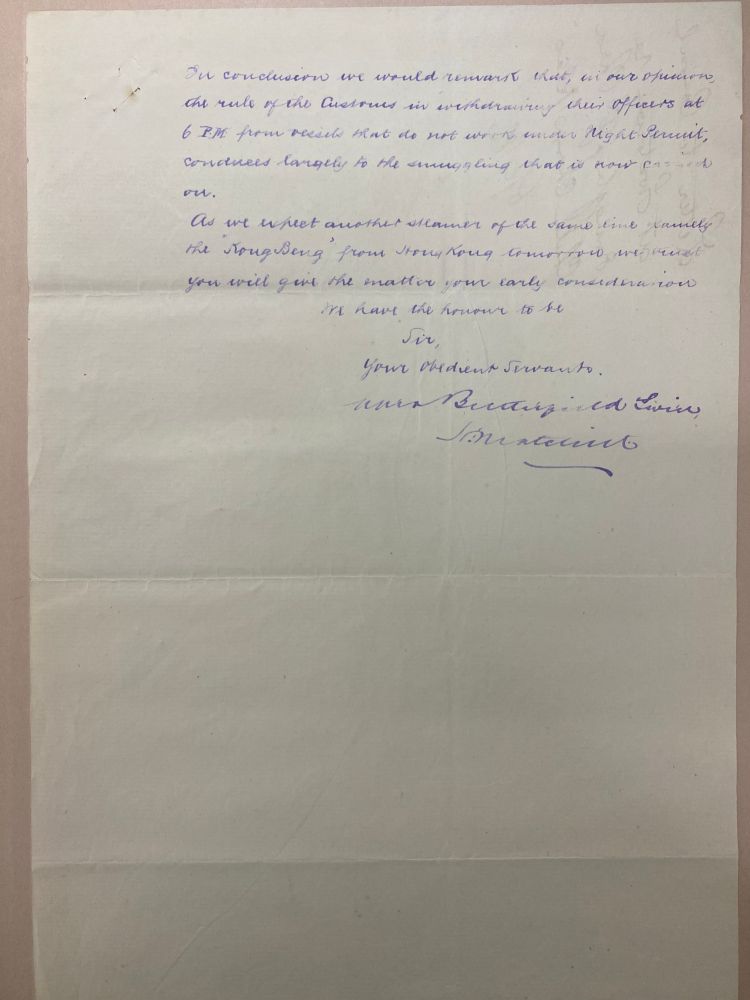 In conclusion we would remark that, in our opinion,
the rule of the Customs in withdrawing their Officers at
6 P.M from vessels that do not work under Night Permit,
conduces largely to the smuggling that is now carried
on.
As we expect another steamer of the same line namely
the "Kong Beng" from Hong Kong tomorrow we trust
you will give the matter your early consideration
We have the honour to be
Sir,
Your Obedient Servants.
Butterfield Swire,